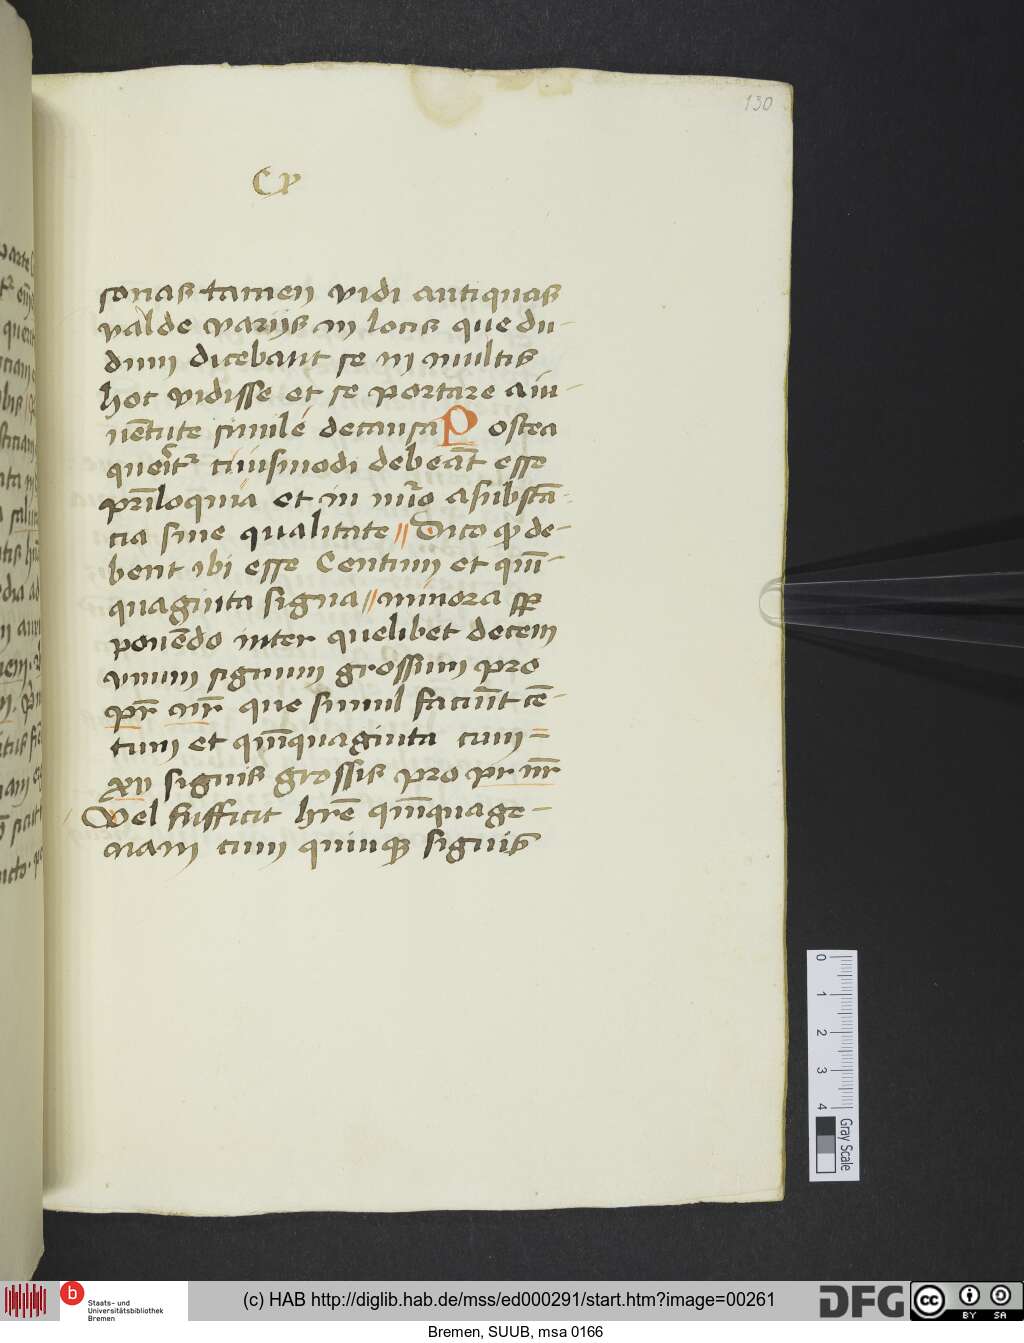 130
CV
sonas tamen vidi antiquas
valde varijs in locis que du-
dum dicebant se in multis
hoc vidisse et se portare a iu-
uētute simile de causa Postea
querit cuiusmodi debeāt esse
et in a substā-
cia siue qualitate // Dico de-
bent ibi esse Centum et quī-
quaginta signa // minora
ponēdo inter quelibet decem
vnum signum grossum pro
pr̄ nr̄ que simul faciūt cē-
tum et quīquaginta cum=
xv signis grossis pro pr nr̄
Vel sufficit hr̄e quīquage-
nam cum quinqȝ signis
0 1 2 3 4
Gray Scale
b Staats- und
Universitätsbibliothek
Bremen
(c) HAB http://diglib.hab.de/mss/ed000291/start.htm?image=00261
DFG
cc BY SA
Bremen, SUUB, msa 0166